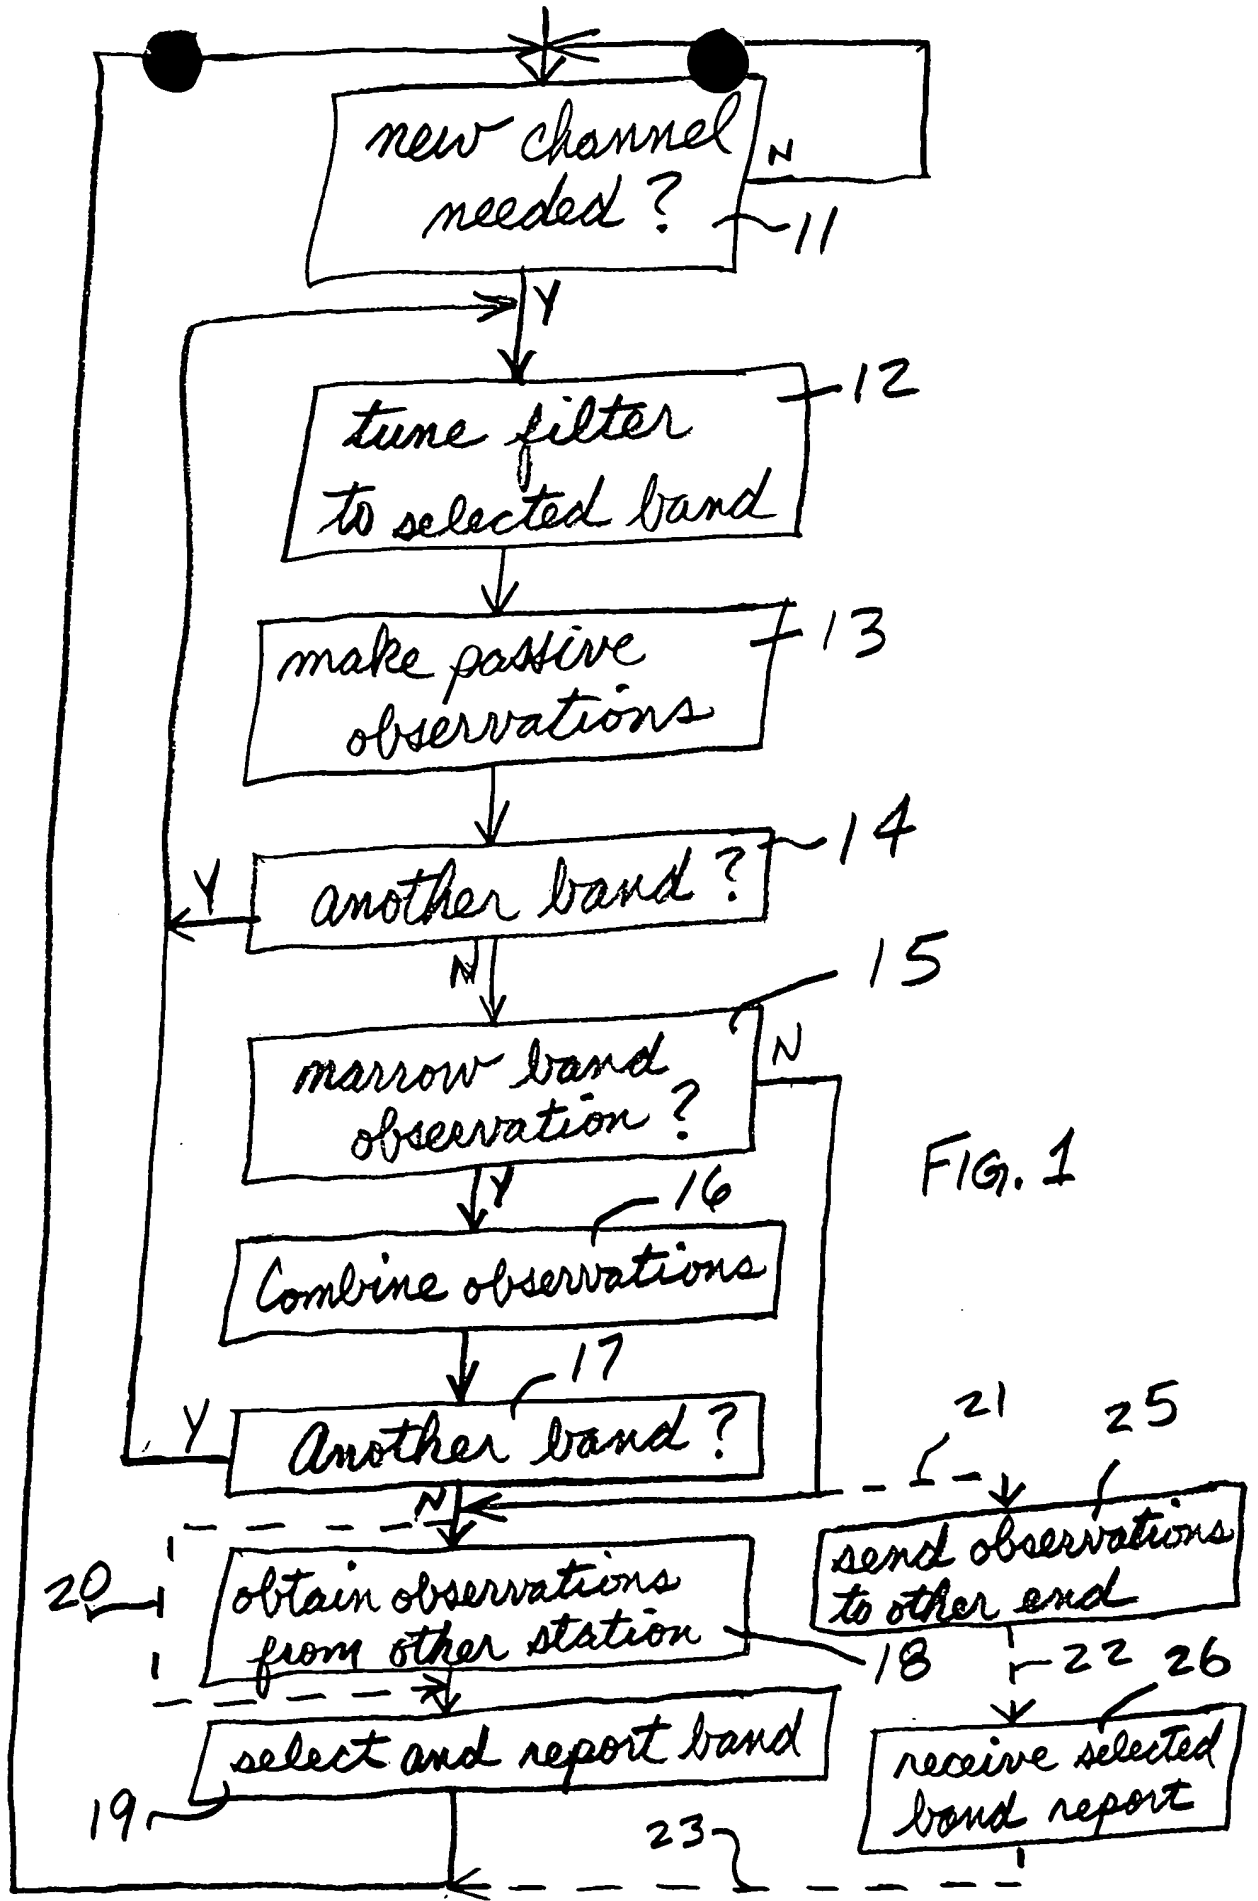 new channel
N
needed?
11
Y
12
tune filter
to selected band
13
make passive
observations
14
Y
another band?
N
15
narrow band
N
observation?
FIG. 1
Y
16
Combine observations
17
Y
Another band?
21
25
N
send observations
to other end
20
obtain observations
from other station
18
22
26
select and report band
receive selected
band report
19
23